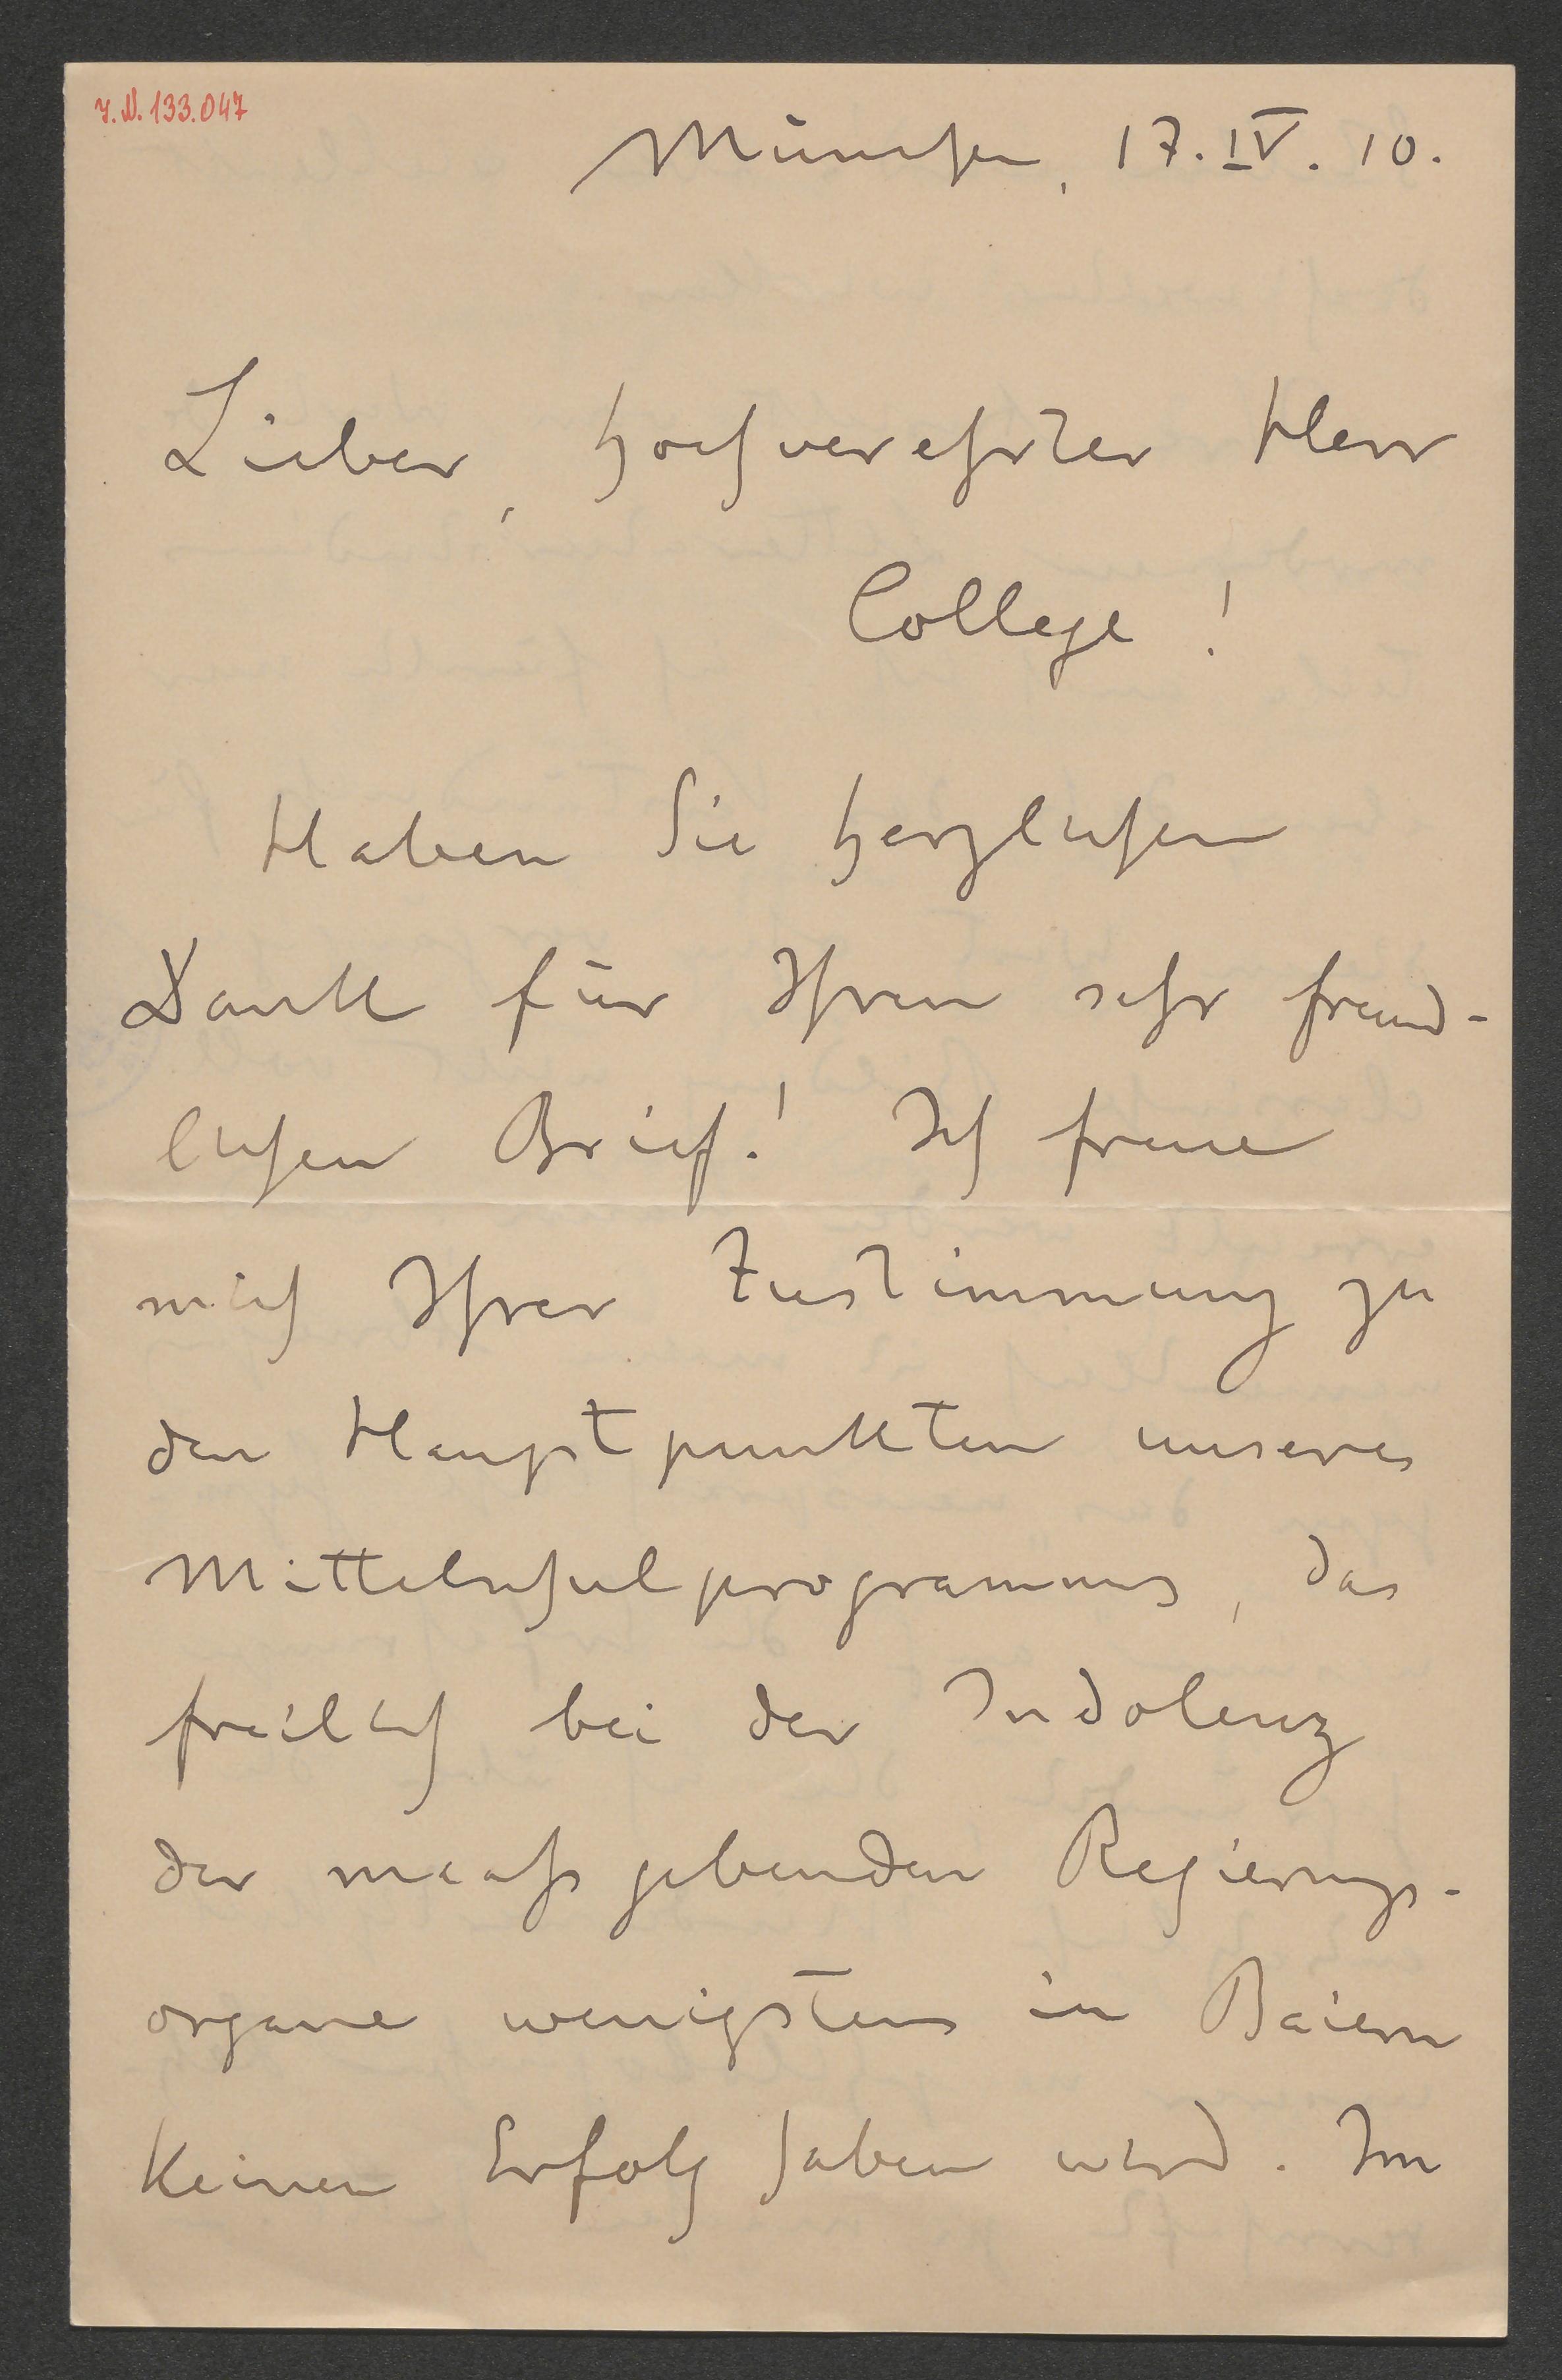 I. N. 133.047
München, 17. IV. 10.
Lieber, hochverehrter Herr
College!
Haben Sie herzlichen
Dank für Ihren sehr freund-
lichen Brief! Ich freue
mich Ihrer Zustimmung zu
den Hauptpunkten unseres
Mittelschulprogramms, das
freilich bei der Indolenz
der maassgebenden Regierungs-
organe wenigstens in Baiern
keinen Erfolg haben wird. Im